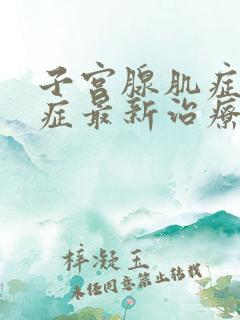 子宫腺肌症
症最新治療
梓凝玉
未经同意禁止转载